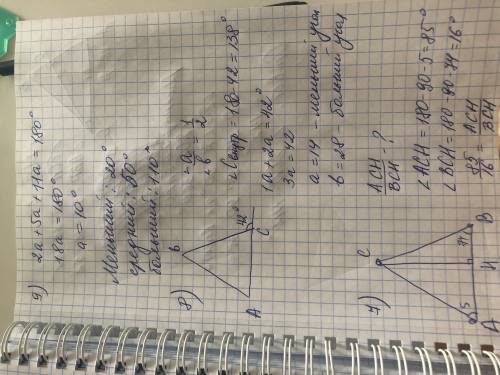 9) 2a + 5a + 11a = 180°
18a = 180°
a = 10°
Меньший: 20°
средний: 50°
больший: 110°
8)
B
A
C
42°
∠a/∠b = 1/2
∠Cвнутр = 180-42 = 138°
1a + 2a = 42°
3a = 42
a = 14 - меньший угол
b = 28 - больший угол
7)
C
A
H
B
5
74
ACH/BCH - ?
∠ACH = 180-90-5 = 85°
∠BCH = 180-90-74 = 16°
85/16 = ACH/BCH